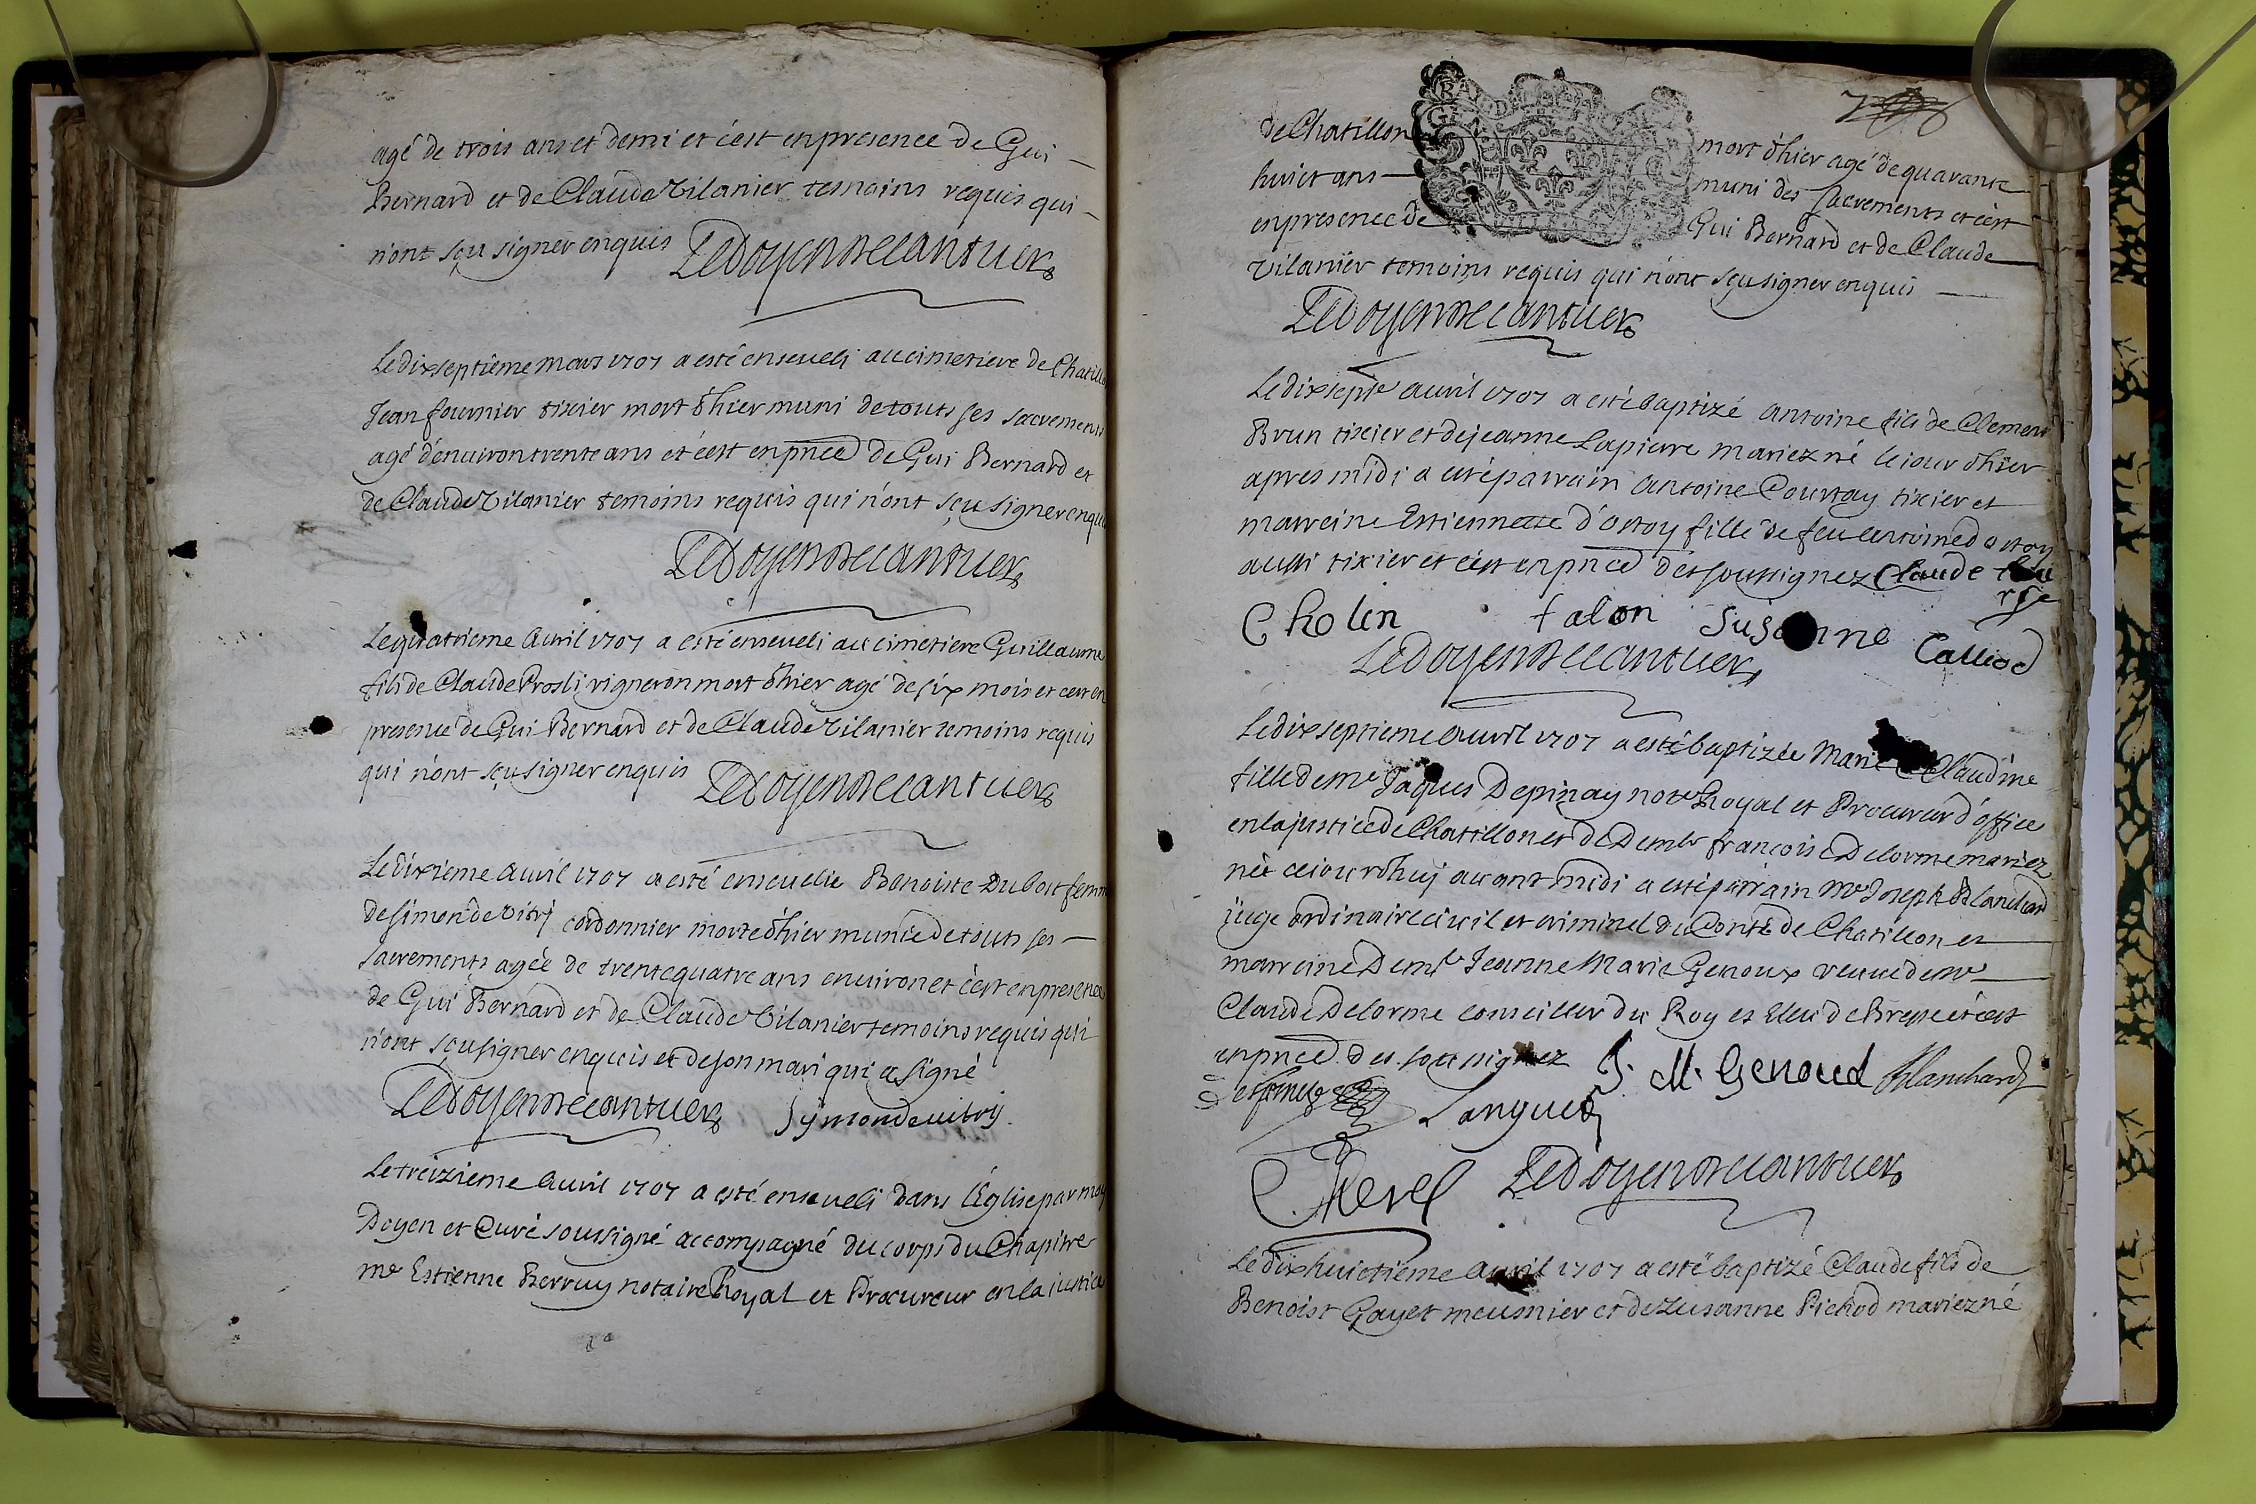 agé de trois ans et demi et c'est en presence de Gui
Bernard et de Claude Vilanier tesmoins requis qui
n'ont sçu signer enquis Ledoyen de Cantuer
Le dixseptieme Mars 1707 a esté enseveli au cimetiere de Chatillon
Jean fournier tixier mort d'hier muni de touts ses sacrements
agé d'environ trente ans et c'est en pnce de Gui Bernard et
de Claude Vilanier temoins requis qui n'ont sçu signer enquis
Ledoyen de Cantuer
Le quatrieme Avril 1707 a esté enseveli au cimetiere Guillaume
fils de Claude Prosli vigneron mort d'hier agé de six mois et cest en
presence de Gui Bernard et de Claude Vilanier temoins requis
qui n'ont sçu signer enquis Ledoyen de Cantuer
Le dixieme Avril 1707 a esté ensevelie Benoiste Dubost femme
de Simon de Vitri cordonnier morte d'hier munie de touts ses
sacrements agée de trente quatre ans environ et c'est en presence
de Gui Bernard et de Claude Vilanier temoins requis qui
n'ont sçu signer enquis et de son mari qui a signé
Ledoyen de Cantuer Symon de vitry
Le treizieme Avril 1707 a esté enseveli dans l'Église par moy
Doyen et Curé soussigné accompagné du corps du Chapitre
me Estienne Berruy notaire Royal et Procureur en la justice
de Chatillon mort d'hier agé de quarante
huict ans muni des sacrements et c'est
en presence de Gui Bernard et de Claude
Vilanier temoins requis qui n'ont sçu signer enquis
Ledoyen de Cantuer
Le dixseptie avril 1707 a esté baptizé Antoine fils de Clement
Brun tixier et de jeanne Lapierre mariez né le jour d'hier
apres midi a eté parrain Antoine Courtay tixier et
marreine Estiennette d'Ostoy fille de feu Antoine d'ostoy
aussi tixier et c'est en pnce des soussignez Claude
Cholin talon Susanne Calliod
Ledoyen de Cantuer
Le dixseptieme Avril 1707 a esté baptizée Marie Claudine
fille de me Jaques Depinay notre Royal et Procureur d'office
en la justice de Chatillon et de Demle françoise Delorme mariez
née cejourd'huy avant midi a esté parrain Mr Joseph Blanchard
juge ordinaire civil et criminel du Conté de Chatillon et
marreine Demle Jeanne Marie Genoux veuve de mr
Claude Delorme Conseiller du Roy et Eleu de Bresse et c'est
en pnce des soussignez J. M. Genoud Blanchard
Ledoyen de Cantuer
Le dixhuictieme Avril 1707 a esté baptizé Claude fils de
Benoist Gayet meusnier et de Zusanne Pichod mariez né